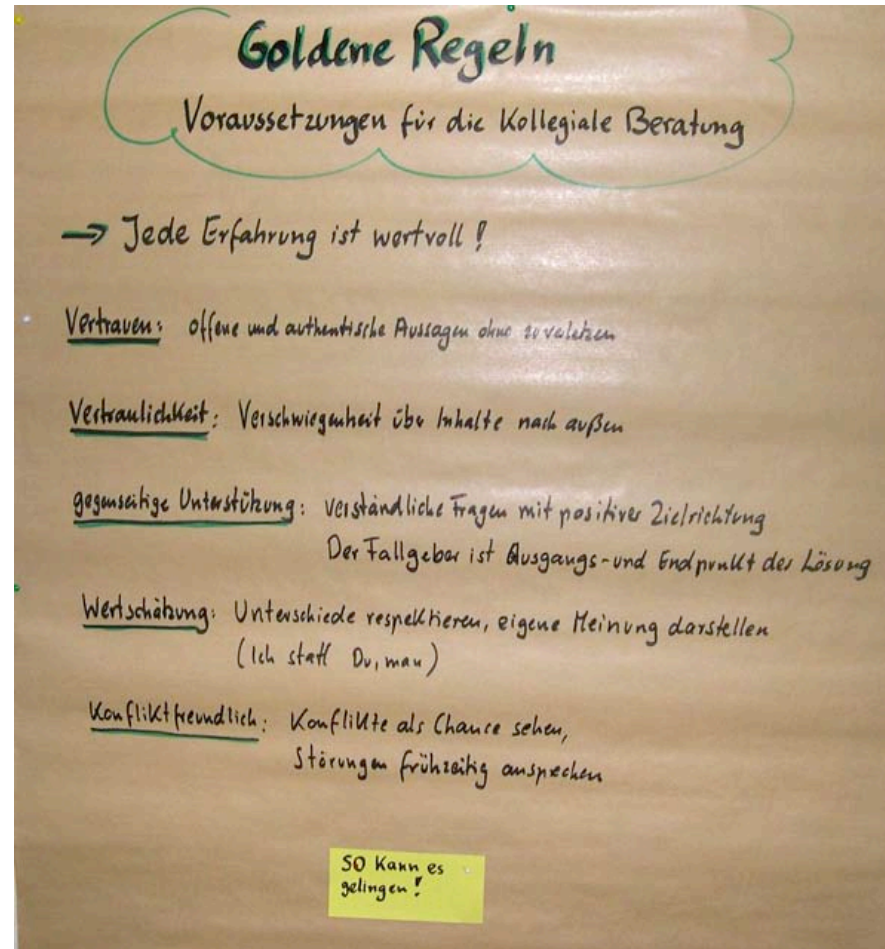 Goldene Regeln
Voraussetzungen für die Kollegiale Beratung
→ Jede Erfahrung ist wertvoll !
Vertrauen: offene und authentische Aussagen ohne zu verletzen
Vertraulichkeit: Verschwiegenheit über Inhalte nach außen
gegenseitige Unterstützung: verständliche Fragen mit positiver Zielrichtung
Der Fallgeber ist Ausgangs- und Endpunkt der Lösung
Wertschätzung: Unterschiede respektieren, eigene Meinung darstellen
(Ich statt Du, man)
Konfliktfreundlich: Konflikte als Chance sehen,
Störungen frühzeitig ansprechen
SO kann es
gelingen!